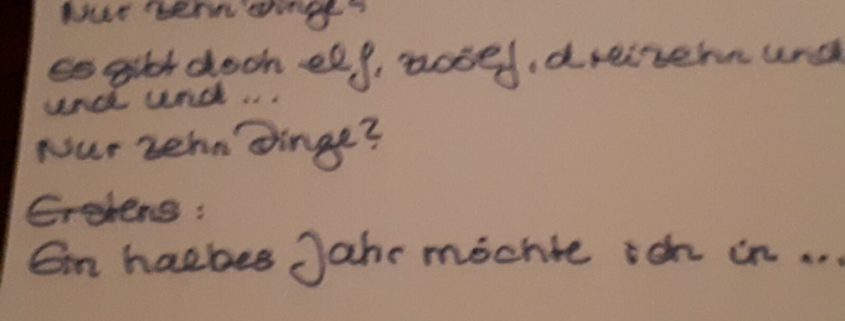 Nur zehn Dinge?
es gibt doch elf, zwölf, dreizehn und
und und ...
Nur zehn Dinge?
Erstens:
Ein halbes Jahr möchte ich in ...